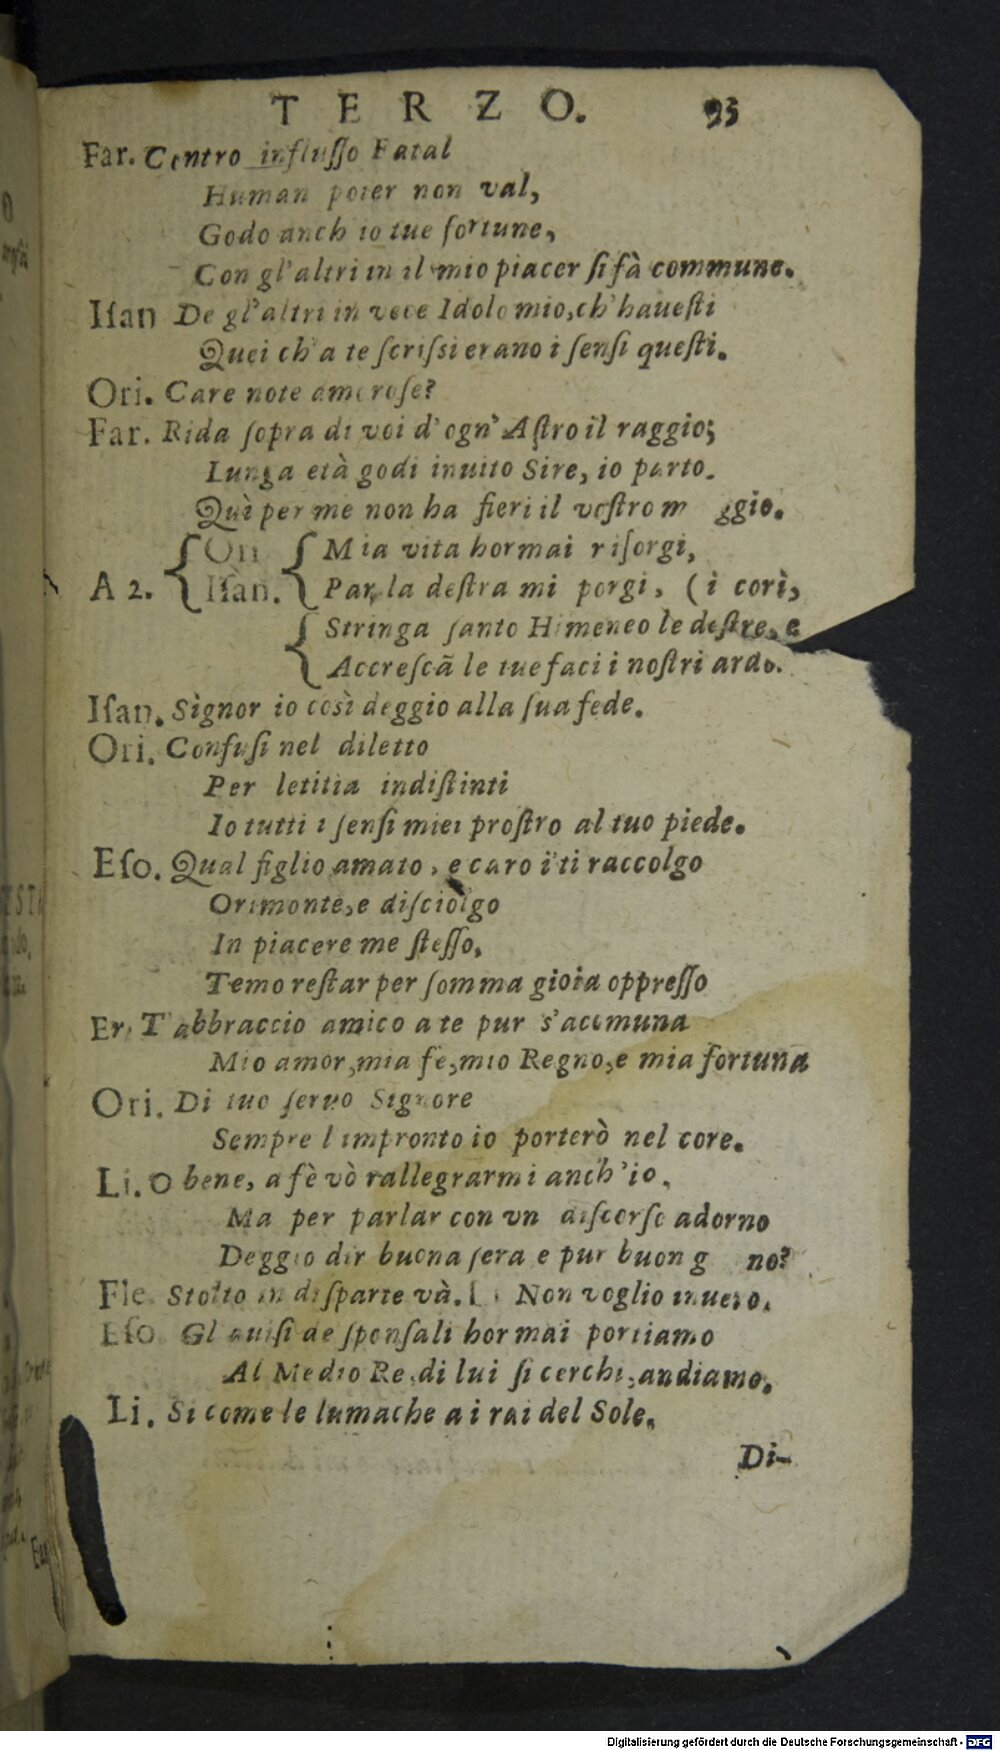 TERZO. 93
Far. Contro influſſo Fatal
Human poter non val,
Godo anch io tue fortune,
Con gl'altri in il mio piacer ſi fà commune.
Iſan De gl'altri in vece Idolo mio, ch'haueſti
Quei ch'a te ſcriſsi erano i ſenſi queſti.
Ori. Care note amoroſe?
Far. Rida ſopra di voi d'ogn'Aſtro il raggio;
Lunga età godi inuito Sire, io parto.
Quì per me non ha fieri il voſtro m ggio.
Ori Mia vita hormai riſorgi,
A 2. Iſan. Par, la deſtra mi porgi, (i corì,
Stringa ſanto Himeneo le deſtre, e
Accreſcã le tue faci i noſtri ardo.
Iſan. Sìgnor io così deggio alla ſua fede.
Ori. Confuſi nel diletto
Per letitia indiſtinti
Io tutti i ſenſi miei proſtro al tuo piede.
Eſo. Qual figlio amato, e caro i'ti raccolgo
Orimonte, e diſciolgo
In piacere me ſteſſo,
Temo reſtar per ſomma gioia oppreſſo
Er. T'abbraccio amico a te pur s'accmuna
Mio amor, mia fe, mio Regno, e mia fortuna
Ori. Di tuo ſeruo Signore
Sempre l impronto io porterò nel core.
Li. O bene, a fè vò rallegrarmi anch'io.
Ma per parlar con vn diſcorſo adorno
Deggio dir buona ſera e pur buon g no?
Fle. Stolto in diſparte và. L. Non voglio inuero.
Eſo Gl auiſi de ſponſali hormai portiamo
Al Medio Re, di lui ſi cerchi, andiamo.
Li. Si come le lumache a i rai del Sole.
Di-
Digitalisierung gefördert durch die Deutsche Forschungsgemeinschaft - DFG